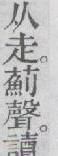 从走。薊聲。讀